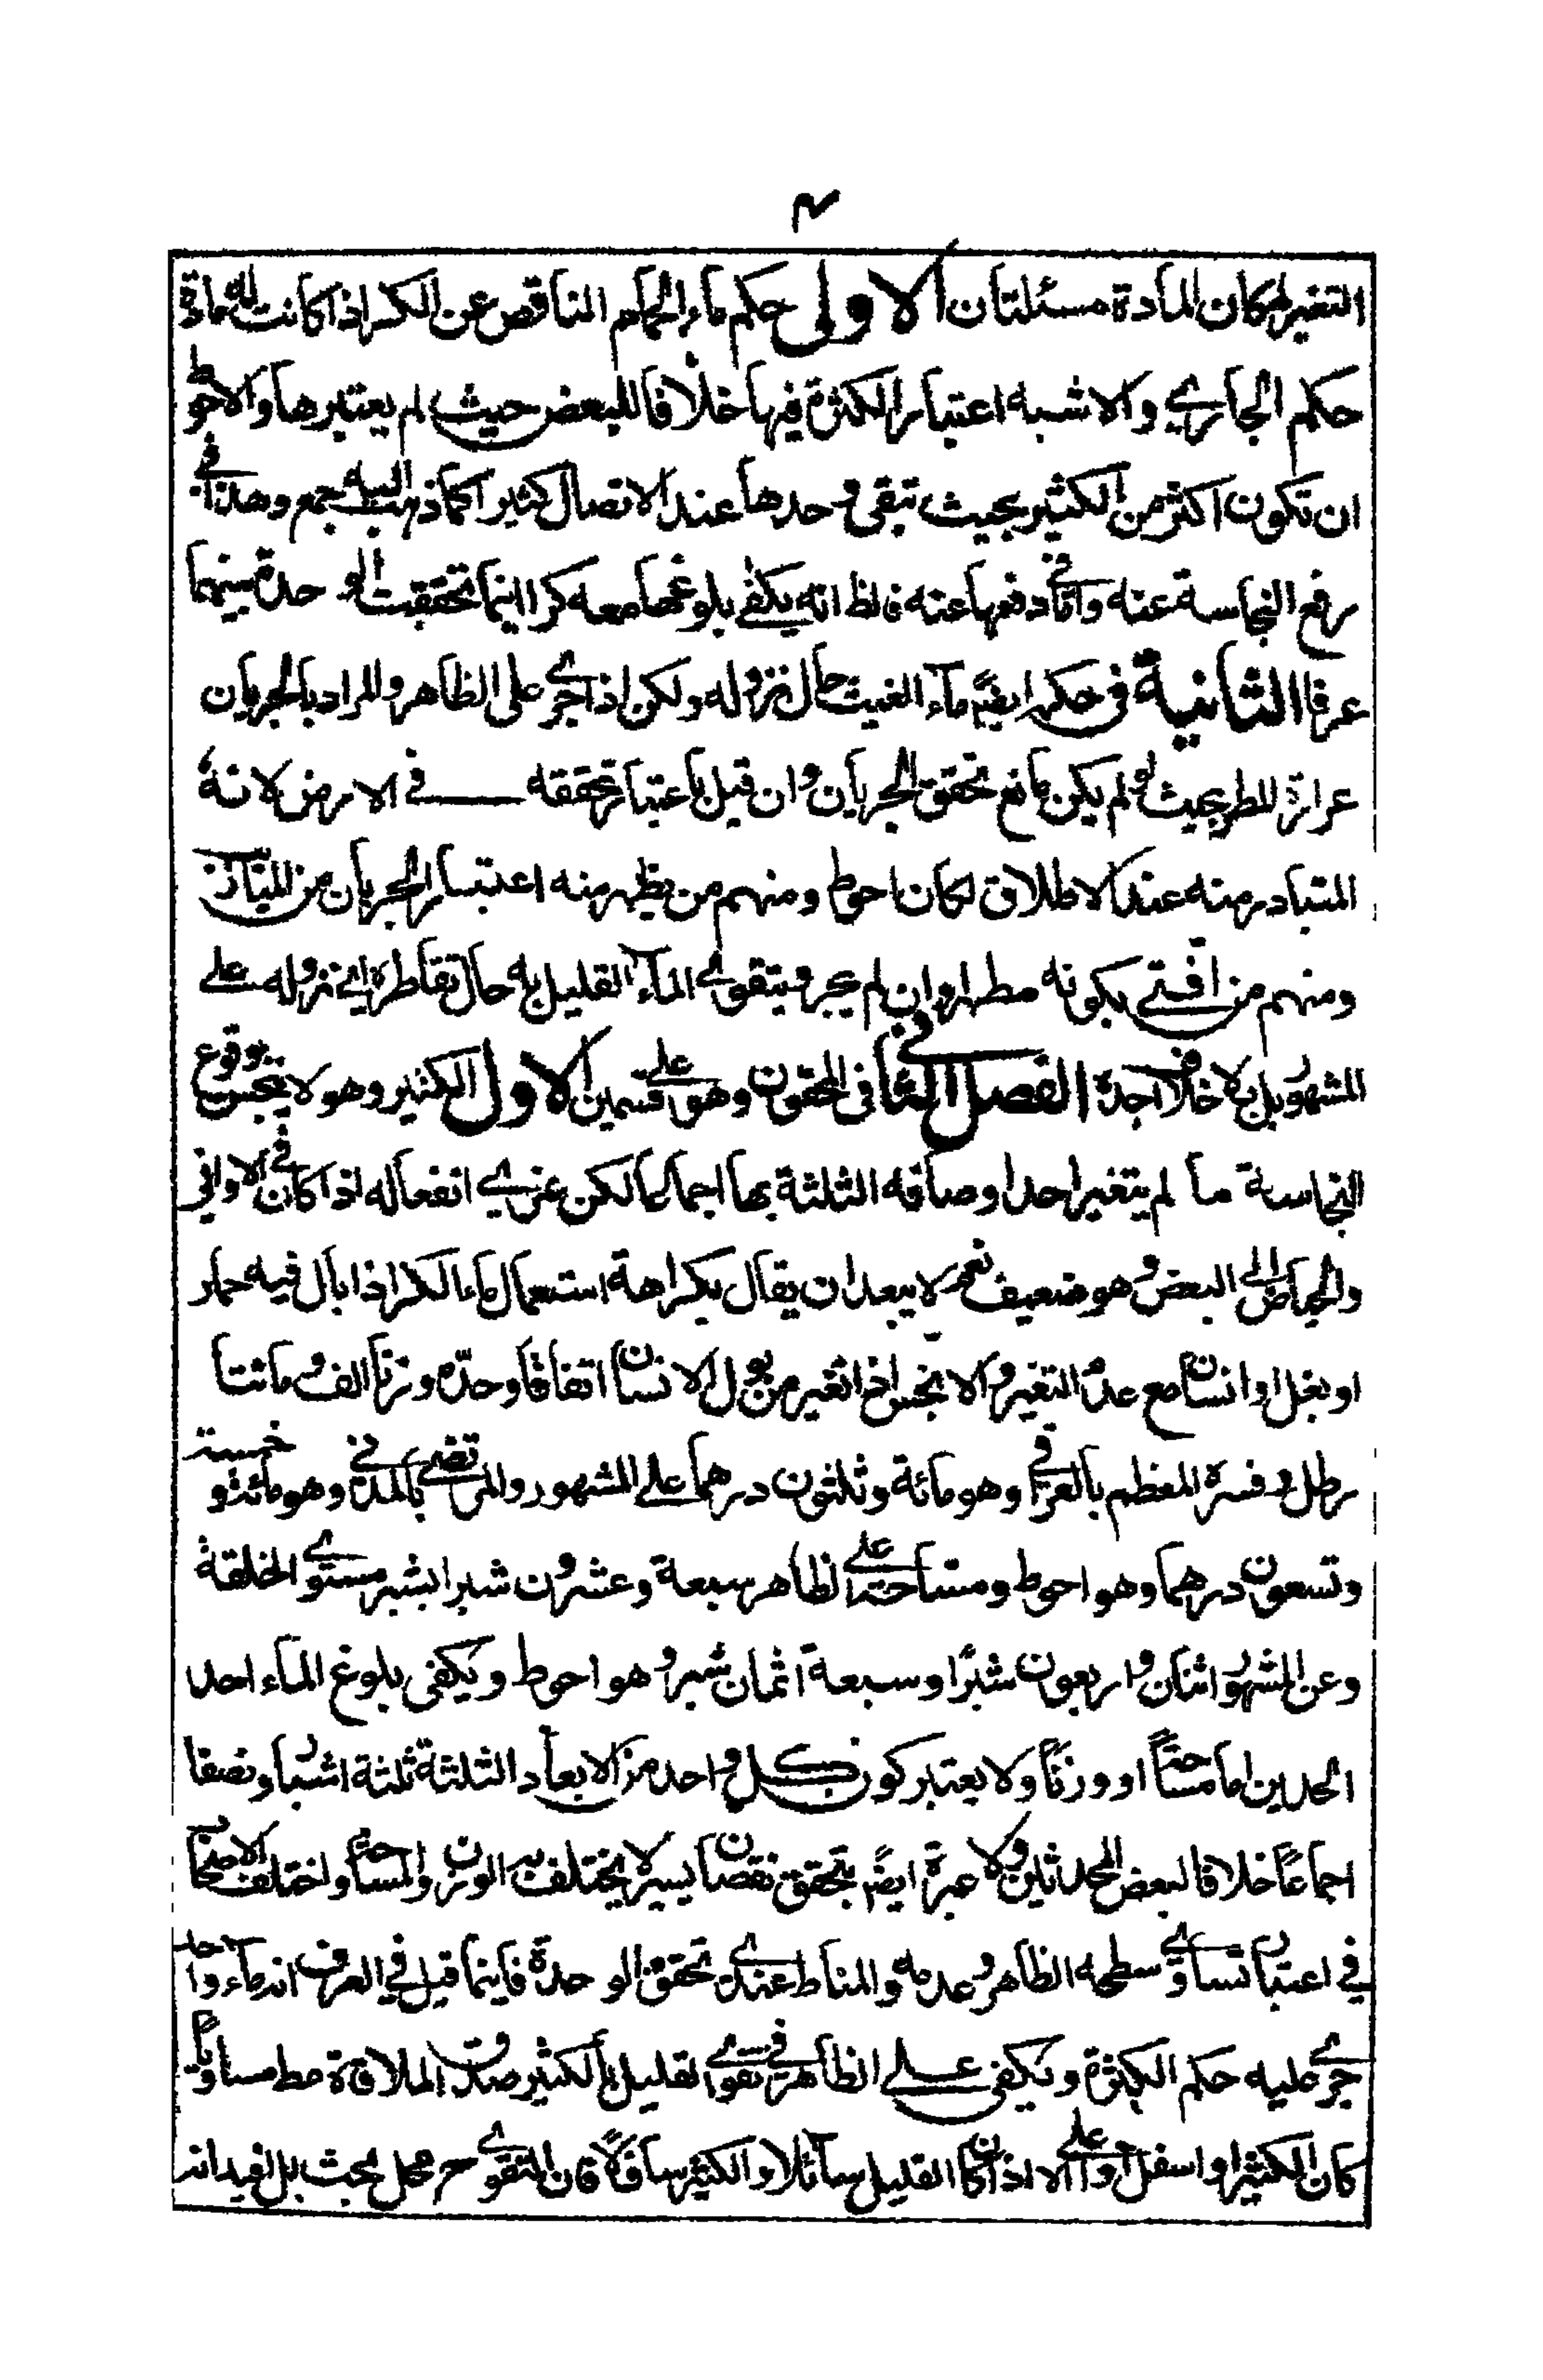 ٣
التغير لمكان المادة مسئلتان الاولى حكم ماء الحمام الناقص عن الكر اذا كانت له مادة
حكم الجاري والاشبه اعتبار الكثرة فيها خلافا للبعض حيث لم يعتبرها والاحوط
ان تكون اكثر من الكثير بحيث تبقى وحدها عند الاتصال كثيرا كما ذهب اليه جمع وهذا في
رفع النجاسة عنه واما في دفعها عنه فالظ انه يكفي بلوغها معه كرا اينما تحققت الوحدة بينهما
عرفا الثانية في حكمه ايضا ماء الغيث حال نزوله ولكن اذا جرى على الظاهر والمراد بالجريان
غزارة المطر بحيث لو لم يكن مانع تحقق الجريان وان قيل باعتبار تحققه في الارض لانه
المتبادر منه عند الاطلاق لكان احوط ومنهم من يظهر منه اعتبار الجريان من الميزاب
ومنهم من افتى بكونه مطهرا وان لم يجر ويتقوى الماء القليل به حال تقاطره اي نزوله على
المشهور بل بلا خلاف اجده الفصل الثاني في المحقون وهو على قسمين الاول الكثير وهو لا ينجس بوقوع
النجاسة ما لم يتغير احد اوصافه الثلثة بها اجماعا لكن عزي انفعاله اذا كان في الاواني
والحياض الى البعض وهو ضعيف نعم لا يبعد ان يقال بكراهة استعمال ماء الكر اذا بال فيه حمار
او بغل او انسان مع عدم التغير والا نجس اذا تغير من بول الانسان اتفاقا وحده وزنا الف ومائتا
رطل وفسره المعظم بالعراقي وهو مائة وثلثون درهما على المشهور والمرتضى بالمدني وهو مائة وخمسة
وتسعون درهما وهو احوط ومساحته على الظاهر سبعة وعشرون شبرا بشبر مستوى الخلقة
وعن المشهور اثنان واربعون شبرا وسبعة اثمان شبر وهو احوط ويكفي بلوغ الماء احد
الحدين اما مساحتا او وزنا ولا يعتبر كون كل واحد من الابعاد الثلثة ثلثة اشبار ونصفا
اجماعا خلافا لبعض المحدثين ولا عبرة ايضا بتحقق نقصان يسير لا يختلف به الوزن والمساحة واختلف الاصحاب
في اعتبار تساوي سطحه الظاهر وعدمه والمناط عندي تحقق الوحدة فاينما قيل في العرف انه ماء واحد
جرى عليه حكم الكثرة ويكفي على الظاهر في تقوي القليل بالكثير صدق الملاقاة مط مساويا
كان الكثير او اسفل او اعلى الا اذا كان القليل سائلا والكثير ساقلا فان التقوي ح محل بحث بل لفيدانه